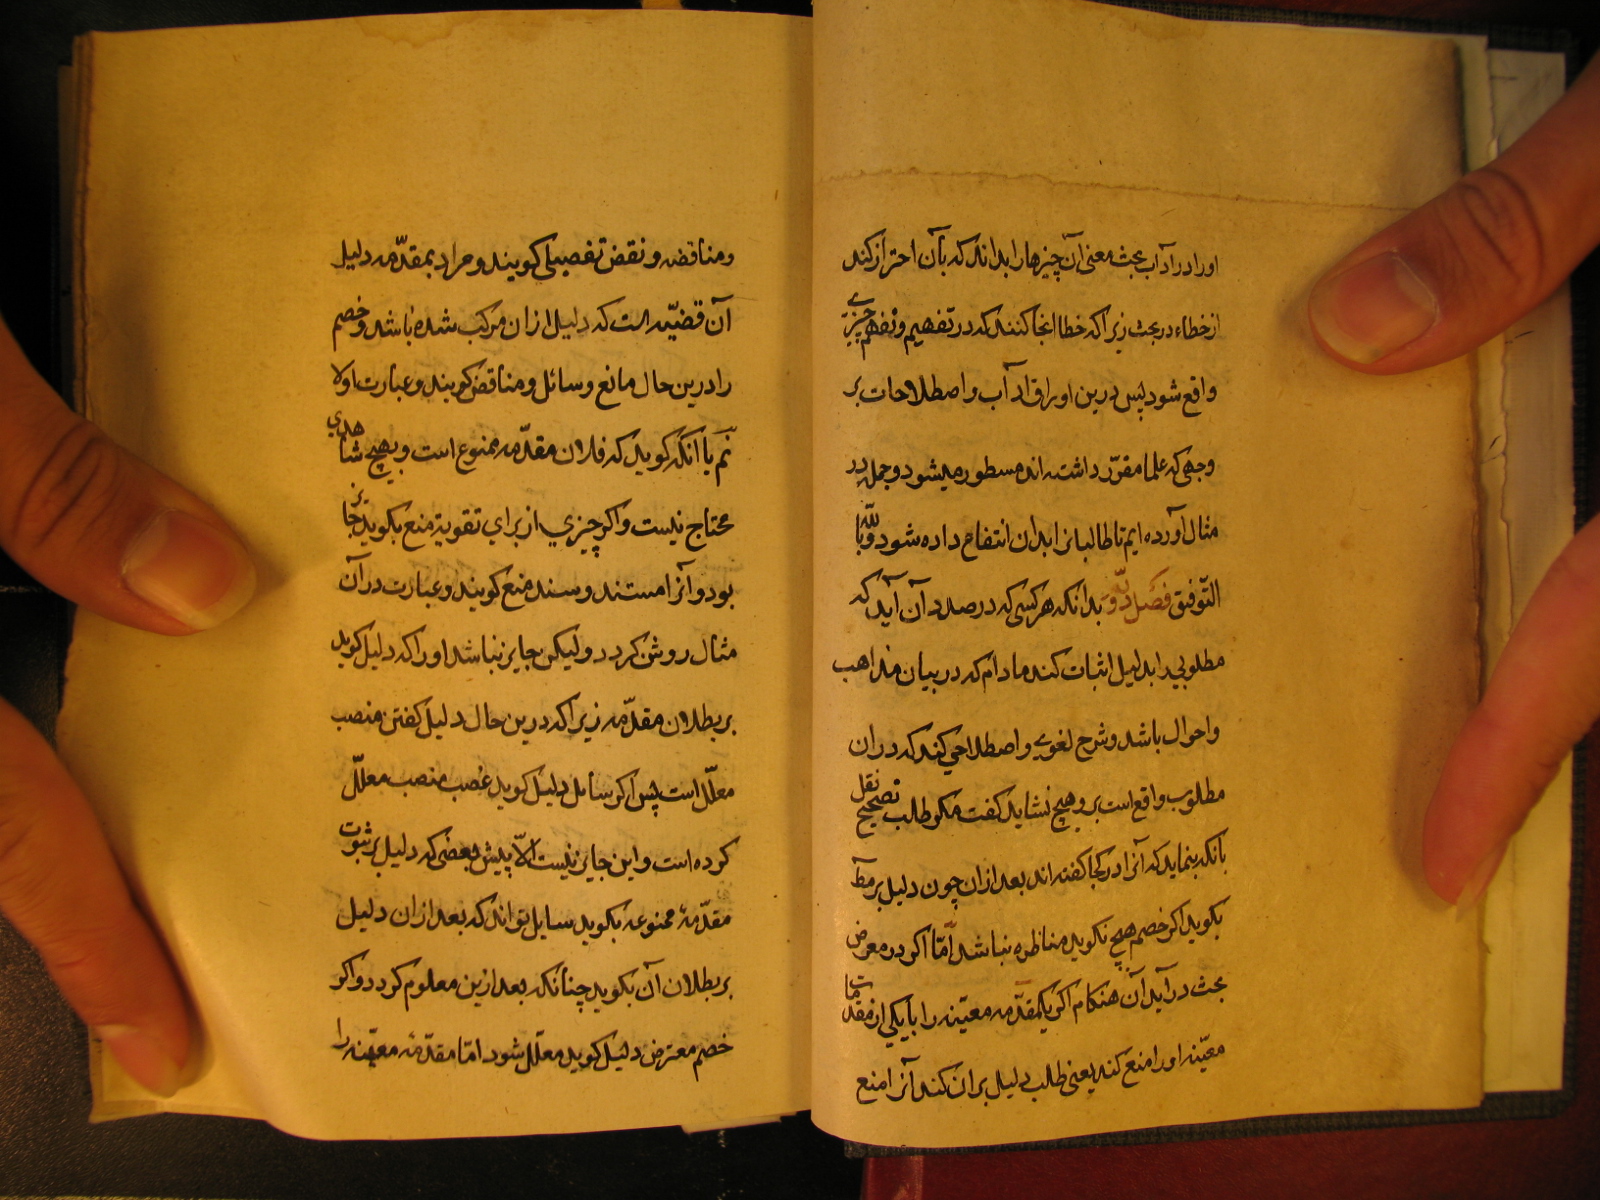 اورا در آداب بحث معنی آن چیزها را بداند که بآن احتراز کند
از خطاء در بحث زیرا که خطا انجا کنند که در تفهیم و تفهم چیزی
واقع شود پس درین اوراق آداب و اصطلاحات بر
وجهی که علما مقرّر داشته اند مسطور میشود و جمله در
مثال آورده ایم تا طالبانرا بدان انتفاع داده شود و باللّه
التّوفیق فصل بدانکه هر کسی که در صدد آن آید که
مطلوبی را بدلیل اثبات کند مادام که در بیان مذاهب
و احوال باشد و شرح لغوی و اصطلاحی کند که دران
مطلوب واقع است بر و هیچ نشاید گفت مکر طلب تصحیح نقل
بانکه بنماید که آنرا در کجا کفته اند بعد ازان چون دلیل بر مط
بکوید اکر خصم هیچ نکوید مناظره نباشد امّا اکر در معرض
بحث در آید آن هنکام اکر یکمقدّمه معیّنه را یا یکی از مقدمات
معیّنه او را منع کند یعنی طلب دلیل بران کند آنرا منع
و مناقضه و نقض تفصیلی کویند و مراد بمقدّمه دلیل
آن قضیّه است که دلیل ازان مرکب شده باشد و خصم
را درین حال مانع و سائل و مناقض کویند و عبارت او لا
نّم یا آنکه کوید که فلان مقدّمه ممنوع است و بهیچ شاهدی
محتاج نیست و اکر چیزی از برای تقویة منع بکوید جایز
بود و آنرا مستند و سند منع کویند و عبارت در آن
مثال روشن کردد و لیکن جایز نباشد او را که دلیل کوید
بر بطلان مقدّمه زیرا که درین حال دلیل کفتن منصب
معلّل است پس اکر سائل دلیل کوید غصب منصب معلّل
کرده است و این جایز نیست الاّ پیش بعضی که دلیل بر ثبوت
مقدّمهٔ ممنوعه بکوید سایل تواند که بعد ازان دلیل
بر بطلان آن بکوید چنانکه بعد ازین معلوم کردد و اکر
خصم معترض دلیل کوید معلّل شود امّا مقدّمهٔ معیّنه را